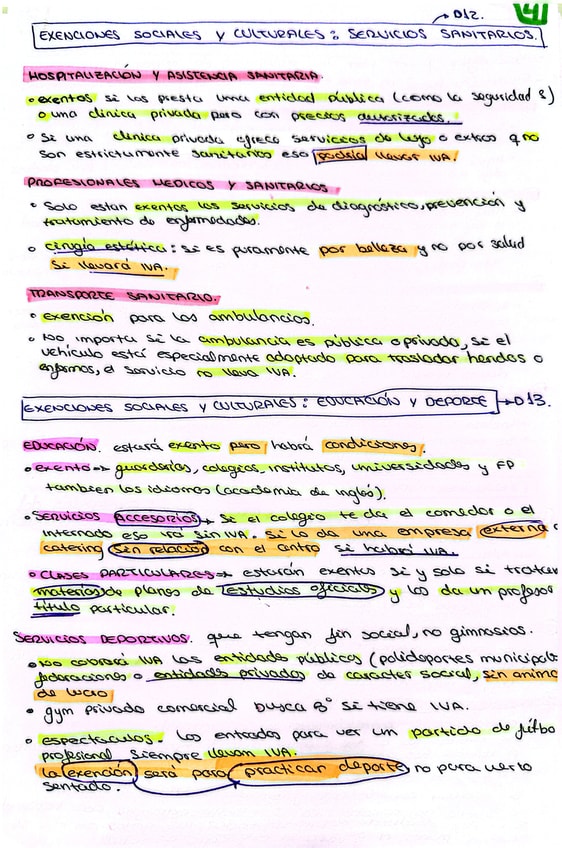 D12.
4
EXENCIONES SOCIALES Y CULTURALES: SERVICIOS SANITARIOS.
HOSPITALIZACIÓN Y ASISTENCIA SANITARIA.
• exentos si las presta una entidad pública (como la seguridad S)
o una clínica privada pero con precios autorizados.
• Si una clínica privada ofrece servicios de lujo o extras q no
son estrictamente sanitarios eso podría llevar IVA.
PROFESIONALES MEDICOS Y SANITARIOS.
• Solo estan exentos los servicios de diagnóstico, prevención y
tratamiento de enfermedades.
• cirugía estética: si es puramente por belleza y no por salud
si llevará IVA.
TRANSPORTE SANITARIO.
• exención para las ambulancias.
• No importa si la ambulancia es pública o privada, si el
vehículo está especialmente adaptado para trasladar heridos o
enfermos, el servicio no lleva IVA.
EXENCIONES SOCIALES Y CULTURALES: EDUCACIÓN Y DEPORTE → D13.
EDUCACIÓN. estará exento pero habrá condiciones.
• exento → guarderías, colegios, institutos, universidades y FP
tambien los idiomas (academia de inglés).
• SERVICIOS ACCESORIOS → Si el colegio te da el comedor o el
internado eso irá sin IVA. Si lo da una empresa externa
catering sin relación con el centro si habrá IVA.
• CLASES PARTICULARES → estarán exentas si y solo si tratan
materias de planes de estudios oficiales y las da un profesor
titulo particular.
SERVICIOS DEPORTIVOS. que tengan fin social, no gimnasios.
• No cobrará IVA las entidades públicas (polideportes municipal
federaciones o entidades privadas de carácter social, sin animo
de lucro
• gym privado comercial busca B° si tiene IVA.
• espectáculos. Las entradas para ver un partido de fútbo
profesional siempre llevan IVA.
La exención será para practicar deporte no para verlo
sentado.